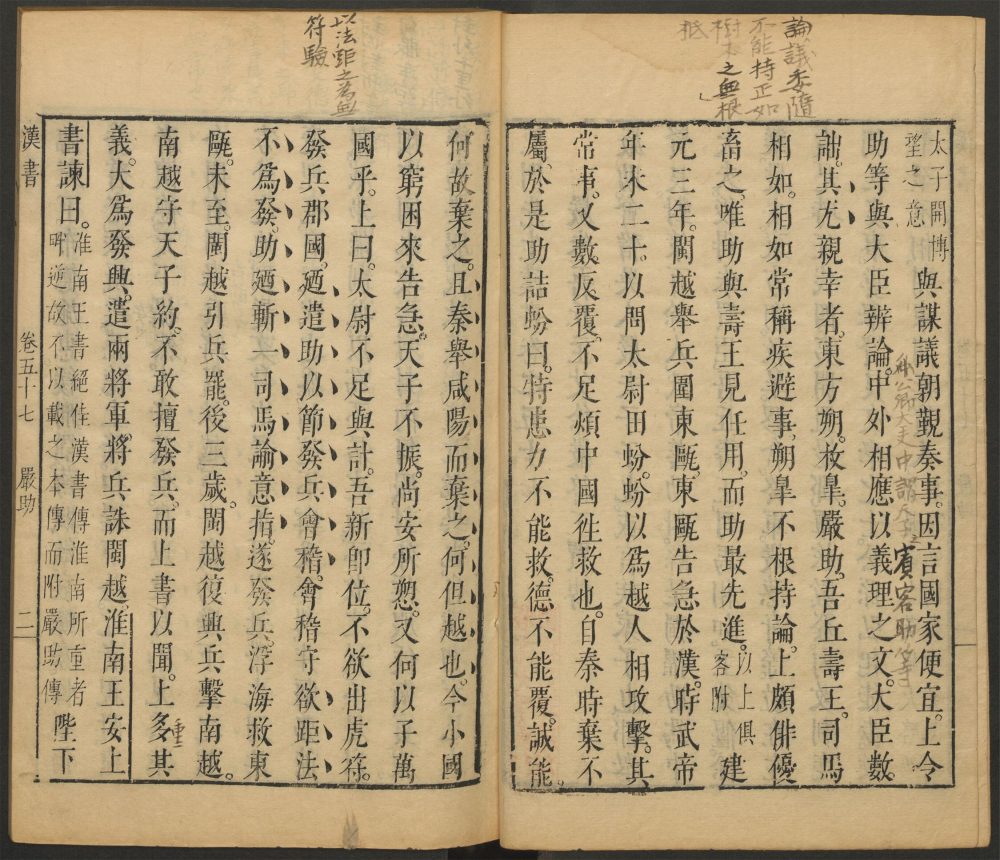 論議委隨
不能持正如
樹木之無根
柢
太子開博
望之意
與謀議朝覲奏事。因言國家便宜。上令
助等與大臣辨論。中外相應以義理之文。大臣數
詘。其尤親幸者。東方朔。枚皐。嚴助。吾丘壽王。司馬
相如。相如常稱疾避事。朔皐不根持論。上頗俳優
畜之。唯助與壽王見任用。而助最先進。
以上俱
客附
建
元三年。閩越舉兵圍東甌。東甌告急於漢。時武帝
年未二十。以問太尉田蚡。蚡以爲越人相攻擊。其
常事。又數反覆。不足煩中國徃救也。自秦時棄不
屬。於是助詰蚡曰。特患力不能救。德不能覆。誠能。
中謂天子之賓客助等
以法距之為無
符驗
何故棄之。且秦舉咸陽而棄之。何但越也。今小國
以窮困來告急。天子不振。尚安所愬。又何以子萬
國乎。上曰。太尉不足與計。吾新卽位。不欲出虎符。
發兵郡國。廼遣助以節發兵會稽。會稽守欲距法
不爲發。助廼斬一司馬諭意指。遂發兵。浮海救東
甌。未至。閩越引兵罷。後三歲。閩越復興兵擊南越。
南越守天子約。不敢擅發兵。而上書以聞。上多其
重
義。大爲發興。遣兩將軍。將兵誅閩越。淮南王安上
書諫曰。
淮南王書絕佳漢書傳淮南所重者
畔逆故不以載之本傳而附嚴助傳
陛下
漢書
卷五十七
嚴助
二